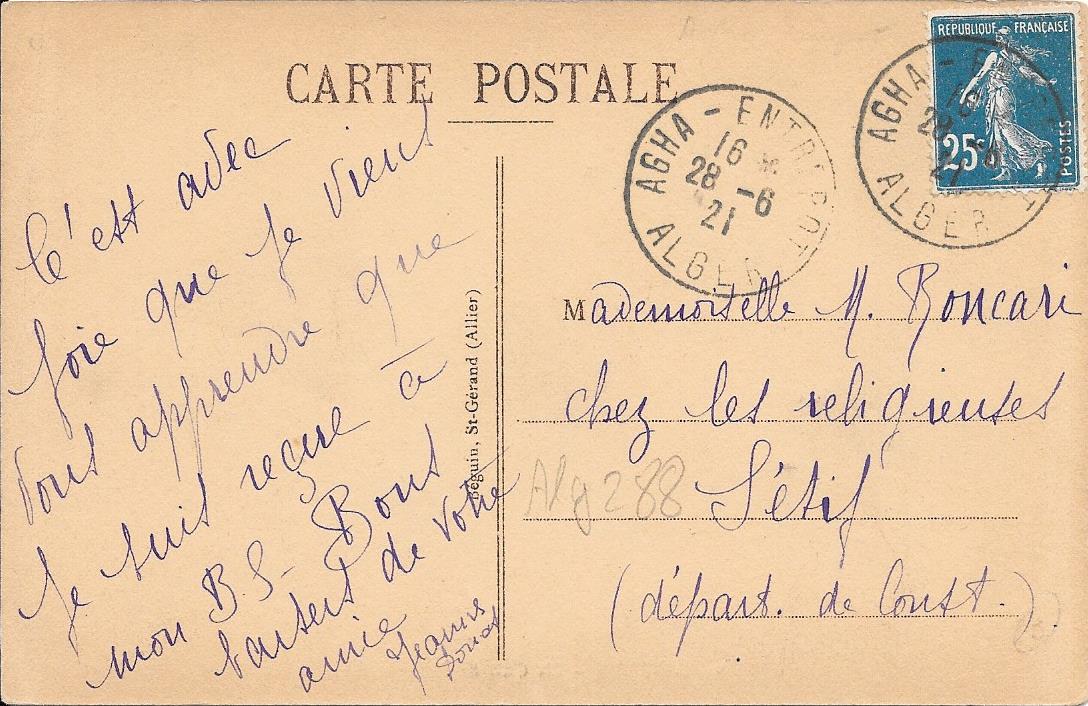 CARTE POSTALE
C'est avec
joie que je viens
vous apprendre que
je suis reçue à
mon B.S- Bons
baisers de votre
amie
Jeanne
Béguin, St-Gérand (Allier)
REPUBLIQUE FRANÇAISE
25c
POSTES
AGHA - ENTREPOT
16 *
28 -6
21
ALGER
AGHA - ENTREPOT
28 -6
21
ALGER
Mademoiselle M. Roncari
chez les religieuses
Sétif
(départ. de Const.)
Alg 288